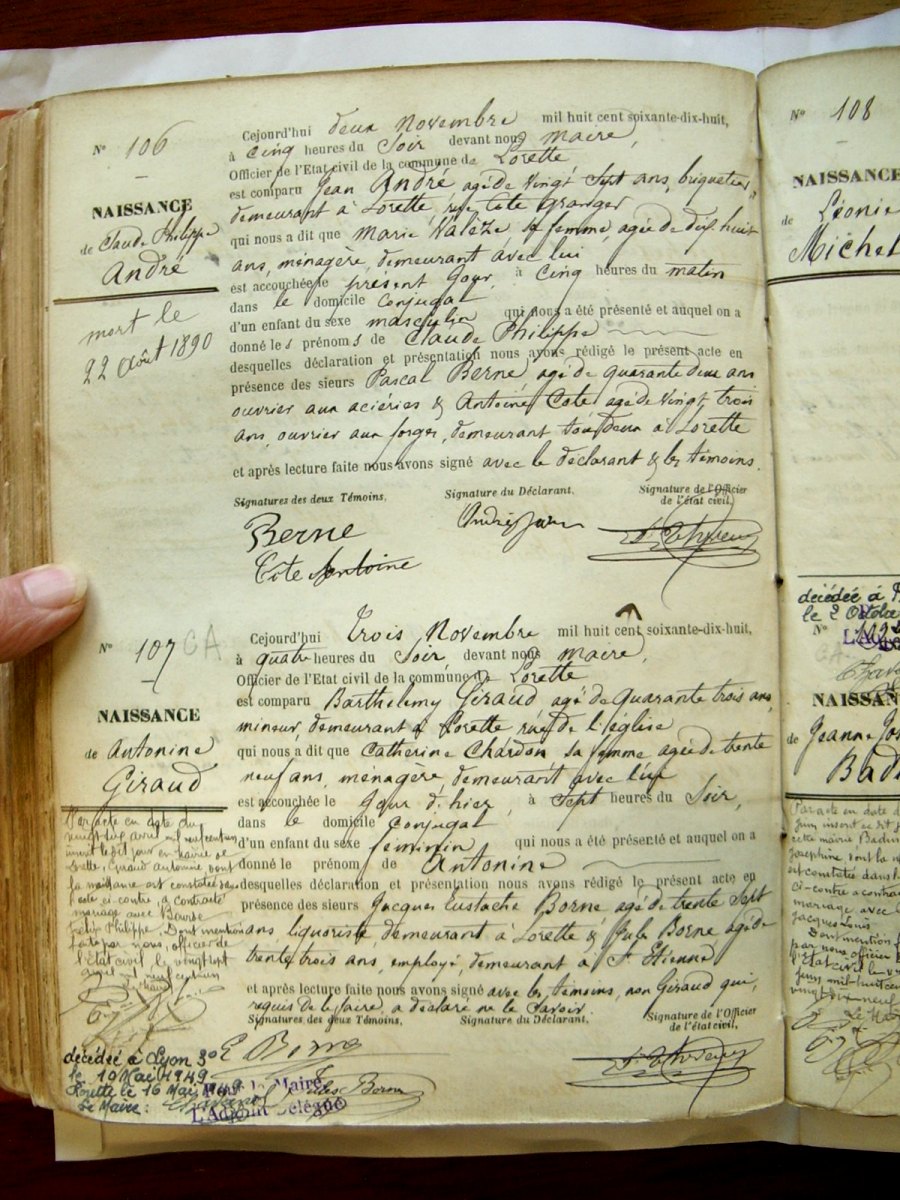 N° 106
NAISSANCE
de Claude Philippe
André
mort le
22 Août 1890
Cejourd'hui deux Novembre mil huit cent soixante-dix-huit,
à Cinq heures du Soir devant nous maire,
Officier de l'Etat civil de la commune de Lorette
est comparu Jean André agé de vingt Sept ans, briquetier,
demeurant à Lorette, rue tête Granger
qui nous a dit que Marie Valèze sa femme, agée de dix huit
ans, ménagère, demeurant avec lui
est accouchée le présent jour, à Cinq heures du matin
dans le domicile Conjugal
d'un enfant du sexe masculin qui nous a été présenté et auquel on a
donné les prénoms de Claude Philippe
desquelles déclaration et présentation nous avons rédigé le présent acte en
présence des sieurs Pascal Berne agé de quarante deux ans
ouvrier aux aciéries & Antoine Cote agé de Vingt trois
ans, ouvrier aux forges, demeurant tous deux à Lorette
et après lecture faite nous avons signé avec le déclarant & les témoins.
Signatures des deux Témoins, Signature du Déclarant, Signature de l'Officier
de l'état civil,
Berne
André Jean
Cote Antoine
N° 107 GA
NAISSANCE
de Antonine
Giraud
Par acte en date du
vingt six avril mil neuf cent un
inscrit le dit jour en mairie de
Lorette, Giraud Antonine dont
la naissance est constatée dans
l'acte ci-contre, a contracté
mariage avec
Philippe, Dont mention
faite par nous, officier de
l'état civil, le vingt sept
avril mil neuf cent un
Le Maire
décédée à Lyon 3e
le 10 Mai 1949
Lorette le 16 Mai 1949
Le Maire:
Pour le Maire
L'Adjoint Délégué
Cejourd'hui trois Novembre mil huit cent soixante-dix-huit,
à quatre heures du Soir, devant nous maire,
Officier de l'Etat civil de la commune de Lorette
est comparu Barthelemy Giraud agé de Quarante trois ans,
mineur, demeurant à Lorette rue de l'église
qui nous a dit que Catherine Chardon sa femme agée de trente
neuf ans, ménagère demeurant avec lui
est accouchée le Jour d'hier, à Sept heures du Soir,
dans le domicile Conjugal
d'un enfant du sexe feminin qui nous a été présenté et auquel on a
donné le prénom de Antonine
desquelles déclaration et présentation nous avons rédigé le présent acte en
présence des sieurs Jacques Eustache Borne agé de trente Sept
ans, liquoriste, demeurant à Lorette & Jules Borne agé de
trente trois ans, employé, demeurant à St Etienne
et après lecture faite nous avons signé avec les témoins, non Giraud qui,
requis de le faire, a déclaré ne le Savoir
Signatures des deux Témoins, Signature du Déclarant, Signature de l'Officier
de l'état civil,
E Borne
Jules Borne
N° 108
NAISSANCE
de Léonie
Michel
décédée à
le 2 Octobre
N° 109
NAISSAN
de Jeanne Jos
Bad
Par acte en date d
Juin inscrit ce dit j
cette mairie Badin
Josephine dont la n
est constatée dans l
ci-contre a contrac
mariage avec
Jacques Louis.
Dont mention f
par nous officier
l'état civil le v
juin mil huit cent
vingt dix neuf
Le Maire